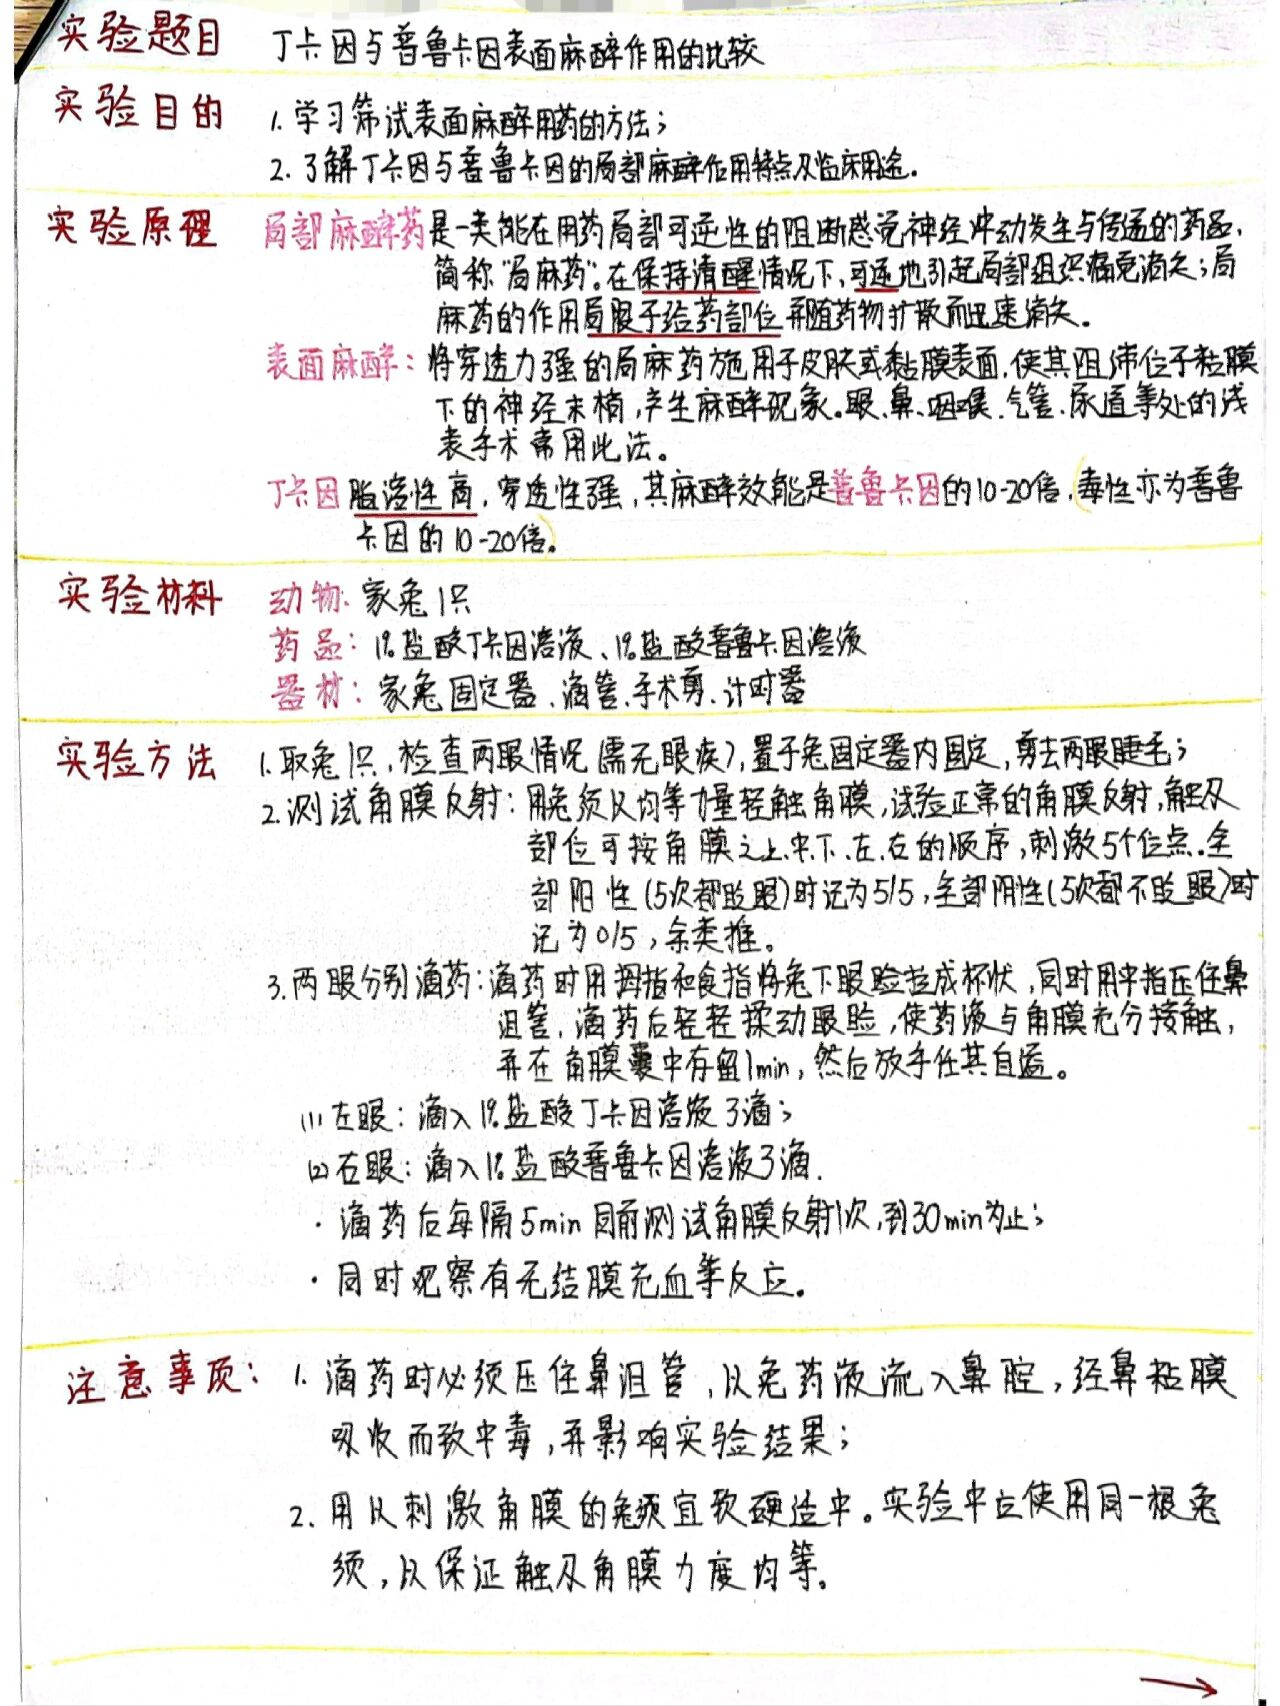 实验题目 丁卡因与普鲁卡因表面麻醉作用的比较
实验目的 1. 学习筛试表面麻醉用药的方法；
2. 了解丁卡因与普鲁卡因的局部麻醉作用特点及临床用途。
实验原理 局部麻醉药是一类能在用药局部可逆性的阻断感觉神经冲动发生与传递的药品，
简称"局麻药"。在保持清醒情况下，可逆地引起局部组织痛觉消失；局
麻药的作用局限于给药部位并随药物扩散而迅速消失。
表面麻醉：将穿透力强的局麻药施用于皮肤或黏膜表面，使其阻滞位于粘膜
下的神经末梢，产生麻醉现象。眼、鼻、咽喉、气管、尿道等处的浅
表手术常用此法。
丁卡因脂溶性高，穿透性强，其麻醉效能是普鲁卡因的10-20倍，（毒性亦为普鲁
卡因的10-20倍）。
实验材料 动物：家兔1只
药品：1%盐酸丁卡因溶液、1%盐酸普鲁卡因溶液
器材：家兔固定器、滴管、手术剪、计时器
实验方法 1. 取兔1只，检查两眼情况（需无眼疾），置于兔固定器内固定，剪去两眼睫毛；
2. 测试角膜反射：用兔须以均等力量轻触角膜，试验正常的角膜反射，触及
部位可按角膜之上、中、下、左、右的顺序，刺激5个位点。全
部阳性（5次都眨眼）时记为5/5，全部阴性（5次都不眨眼）时
记为0/5，余类推。
3. 两眼分别滴药：滴药时用拇指和食指将兔下眼睑拉成杯状，同时用中指压住鼻
泪管，滴药后轻轻揉动眼睑，使药液与角膜充分接触，
并在角膜囊中存留1min，然后放手任其自溢。
(1) 左眼：滴入1%盐酸丁卡因溶液3滴；
(2) 右眼：滴入1%盐酸普鲁卡因溶液3滴.
· 滴药后每隔5min同前测试角膜反射1次，到30min为止；
· 同时观察有无结膜充血等反应。
注意事项：1. 滴药时必须压住鼻泪管，以免药液流入鼻腔，经鼻粘膜
吸收而致中毒，并影响实验结果；
2. 用以刺激角膜的兔须宜软硬适中。实验中应使用同一根兔
须，以保证触及角膜力度均等。